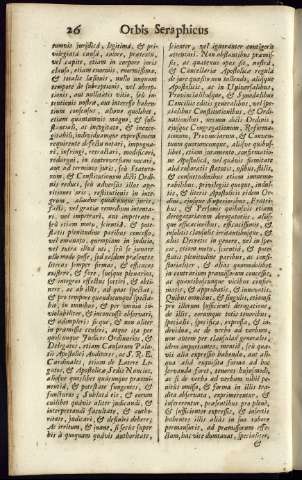 26 Orbis Seraphicus
omnis juridica, legitima, & pri-
vilegiata causa, colore, prætextu,
vel capite, etiam in corpore juris
clauso, etiam enormis, enormissimæ,
& totalis læsionis, nullo unquam
tempore de subreptionis, vel obrep-
tionis, aut nullitatis vitio, seu in-
tentionis nostræ, aut interesse haben-
tium consensus, aliove quolibet,
etiam quantumvis magno, & sub-
stantiali, ac inexcogitato, & inexco-
gitabili, individuamque expressionem
requirente defectu notari, impugna-
ri, infringi, retractari, moderari,
redarguі, in controversiam vocari,
aut ad terminos juris, seu Statuto-
rum, & Constitutionum dicti Ordi-
nis reduci, seu adversus illas ape-
ritionis oris, restitutionis in inte-
grum, aliudve quodcumque juris,
facti, vel gratiæ remedium intenta-
ri, vel impetrari, aut impetrato,
seu etiam motu, scientia, & pote-
statis plenitudine paribus concesso,
vel emanato, quempiam in judicio,
vel extra illud uti, seu se juvare
ullo modo posse, sed easdem præsentes
literas semper firmas, & efficaces
existere, & fore, suosque plenarios,
& integros effectus sortiri, & obti-
nere, ac ab illis, ad quos spectat,
& pro tempore quandocumque specta-
bit, in omnibus, & per omnia in-
violabiliter, & inconcusse observari,
& adimpleri; sicque, & non aliter
in præmissis censeri, atque ita per
quoscumque Judices Ordinarios, &
Delegatos, etiam Causarum Pala-
tii Apostolici Auditores, ac S. R. E.
Cardinales, etiam de Latere Le-
gatos, & Apostolicæ Sedis Nuncios,
aliosve quoslibet quacumque præemi-
nentia, & potestate fungentes, &
functuros; Sublata eis, & eorum
cuilibet quavis aliter judicandi, &
interpretandi facultate, & autho-
ritate, judicari, & definiri debere;
Ac irritum, & inane, si secus super
his a quoquam quavis authoritate,
scienter, vel ignoranter contigerit
attentari. Non obstantibus præmis-
sis, ac quatenus opus sit, nostra,
& Cancellariæ Apostolicæ regula
de jure quæsito non tollendo, aliisque
Apostolicis, ac in Universalibus,
Provincialibusque, & Synodalibus
Conciliis editis generalibus, vel spe-
cialibus Constitutionibus, & Ordi-
nationibus, necnon dicti Ordinis,
ejusque Congregationum, Reforma-
tionum, Provinciarum, & Conven-
tuum quorumcumque, aliisve quibus-
libet, etiam juramento, confirmatio-
ne Apostolica, vel quavis firmitate
alia roboratis statutis, usibus, stylis,
& consuetudinibus etiam immemo-
rabilibus, privilegiis quoque, indul-
tis, & literis Apostolicis eidem Or-
dini, ejusque Superioribus, Fratri-
bus, & Personis quibuslibet etiam
derogatoriarum derogatoriis, aliisve
que efficacioribus, efficacissimis, &
insolitis clausulis, irritantibusque, &
aliis Decretis in genere, vel in spe-
cie, etiam motu, scientia, & pote-
statis plenitudine paribus, ac consi-
storialiter, & aliis quomodolibet
in contrarium præmissorum concessis,
ac quandocumque vicibus confir-
matis, & approbatis, & innovatis.
Quibus omnibus, & singulis, etiamsi
pro illorum sufficienti derogatione
de illis, eorumque totis tenoribus,
specialis, specifica, expressa, & in-
dividua, ac de verbo ad verbum,
non autem per clausulas generales,
idem importantes, mentio, seu quæ-
vis alia expressio habenda, aut ali-
qua alia exquisita forma ad hoc
servanda foret, tenores hujusmodi,
ac si de verbo ad verbum nihil pe-
nitus omisso, & forma in illis tra-
dita observata, exprimerentur, &
insererentur, præsentibus pro plene,
& sufficienter expressis, & insertis
habentes illis alias in suo robore
permansuris, ad præmissorum effe-
ctum, hac vice dumtaxat, specialiter,
&